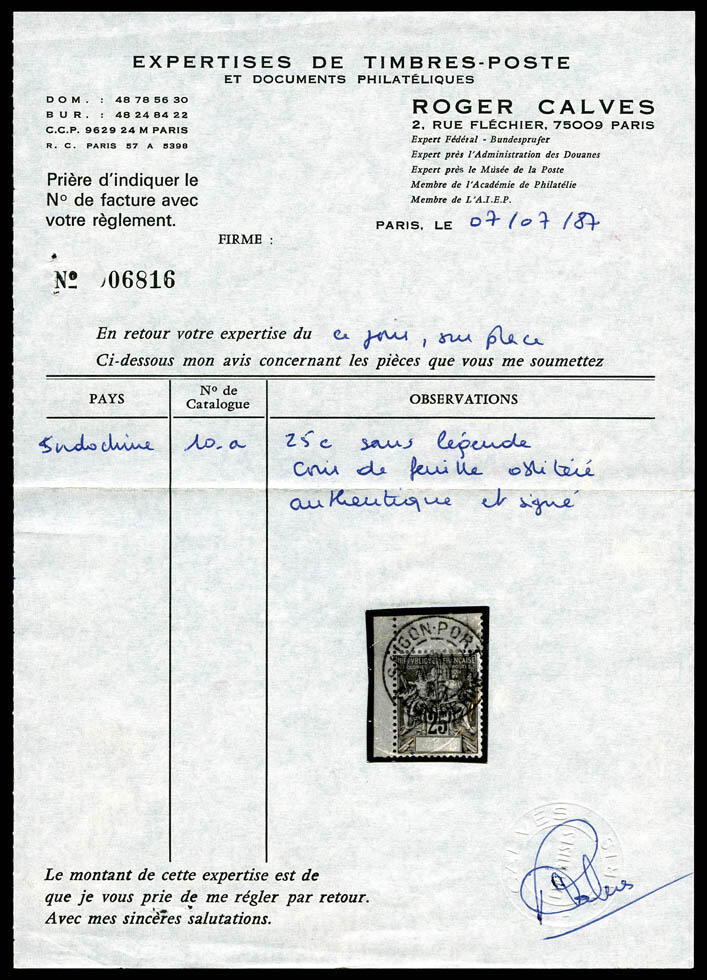 EXPERTISES DE TIMBRES-POSTE
ET DOCUMENTS PHILATÉLIQUES
DOM. : 48 78 56 30
BUR. : 48 24 84 22
C.C.P. 9629 24 M PARIS
R. C. PARIS 57 A 5398
ROGER CALVES
2, RUE FLÉCHIER, 75009 PARIS
Expert Fédéral - Bundesprufer
Expert près l'Administration des Douanes
Expert près le Musée de la Poste
Membre de l'Académie de Philatélie
Membre de L'A.I.E.P.
Prière d'indiquer le
Nº de facture avec
votre règlement.
PARIS, LE 07/07/87
FIRME :
Nº 06816
En retour votre expertise du ce jour, sur place
Ci-dessous mon avis concernant les pièces que vous me soumettez
PAYS
Nº de
Catalogue
OBSERVATIONS
Indochine 10-a 25c sans légende
coin de feuille oblitéré
authentique et signé
SAIGON-PORT
REPUBLIQUE FRANÇAISE
25
Le montant de cette expertise est de
que je vous prie de me régler par retour.
Avec mes sincères salutations.
CALVES
PARIS
Calves